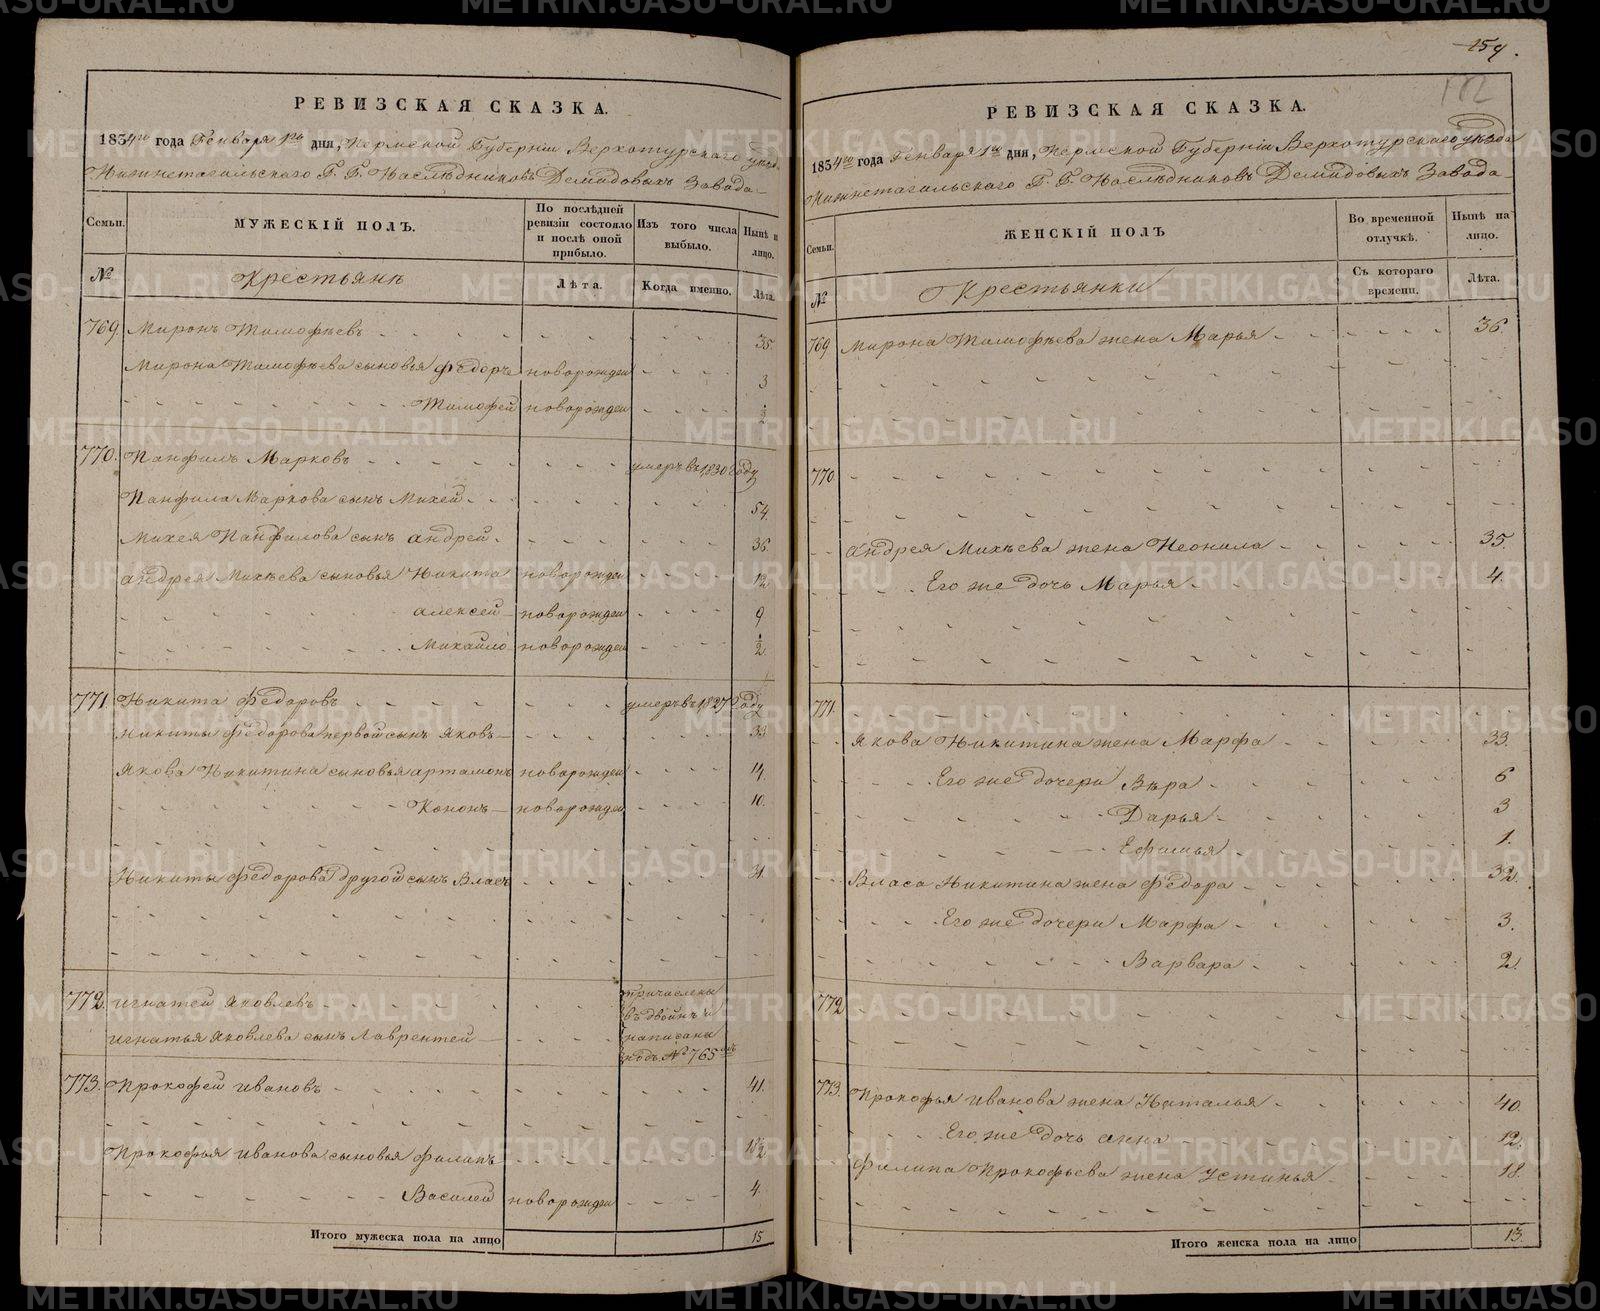 РЕВИЗСКАЯ СКАЗКА.
1834го года Генваря 1го дня, Пермской Губернiи Верхотурскаго уезда
Нижнетагильскаго Г. Г. Наслѣдниковъ Демидовыхъ Завода
Семьи.
МУЖЕСКIЙ ПОЛЪ.
По послѣдней ревизiи состояло и послѣ оной прибыло.
Изъ того числа выбыло.
Нынѣ на лицо.
№
Крестьяне
Лѣта.
Когда именно.
Лѣта.
769. Миронъ Тимофѣевъ 35.
Мирона Тимофѣева сыновья Федоръ новорожден 3
Тимофей новорожден ½
770. Панфилъ Марковъ умеръ въ 1830 году
Панфила Маркова сынъ Михей 54.
Михея Панфилова сынъ Андрей 36.
Андрея Михѣева сыновья Никита новорожден 12
Алексей новорожден 9
Михайло новорожден ½
771. Никита Федоровъ умеръ въ 1827 году
Никиты Федорова первой сынъ Яковъ 33
Якова Никитина сыновья Артамонъ новорожден 14.
Кононъ новорожден 10.
Никиты Федорова другой сынъ Власъ 31.
772. Игнатей Яковлевъ причислены
въ двойнѣ и
Игнатья Яковлева сынъ Лаврентей написаны
подъ № 765мъ
773. Прокофей Ивановъ 41.
Прокофья Иванова сыновья Филипъ 18½
Василей новорожден 4.
Итого мужеска пола на лицо 15
159.
182
РЕВИЗСКАЯ СКАЗКА.
1834го года Генваря 1го дня, Пермской Губернiи Верхотурскаго уѣзда
Нижнетагильскаго Г. Г. Наслѣдниковъ Демидовыхъ Завода
Семьи.
ЖЕНСКIЙ ПОЛЪ
Во временной отлучкѣ.
Нынѣ на лицо.
№
Крестьянки
Съ котораго времени.
Лѣта.
769 Мирона Тимофѣева жена Марья 36.
770.
Андрея Михѣева жена Неонила 35.
Его же дочь Марья 4.
771.
Якова Никитина жена Марфа 33.
Его же дочери Вѣра 6
Дарья 3
Ефимья 1.
Власа Никитина жена Федора 32.
Его же дочери Марфа 3.
Варвара 2.
772
773. Прокофья Иванова жена Наталья 40.
Его же дочь Анна 12.
Филипа Прокофьева жена Устинья 18.
Итого женска пола на лицо 13.
METRIKI.GASO-URAL.RU